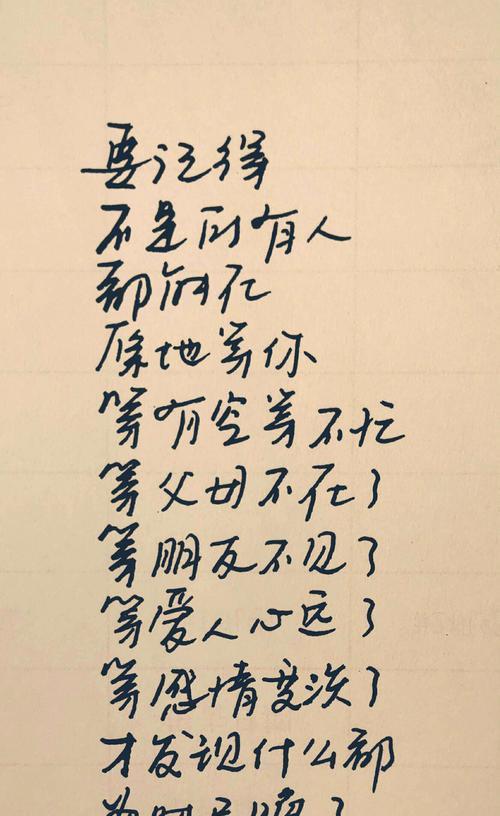 要记得
不是所有人
都能在
原地等你
等有空等不忙
等父母不在了
等朋友不见了
等爱人心远了
等感情变淡了
才发现什么都
为时已晚了